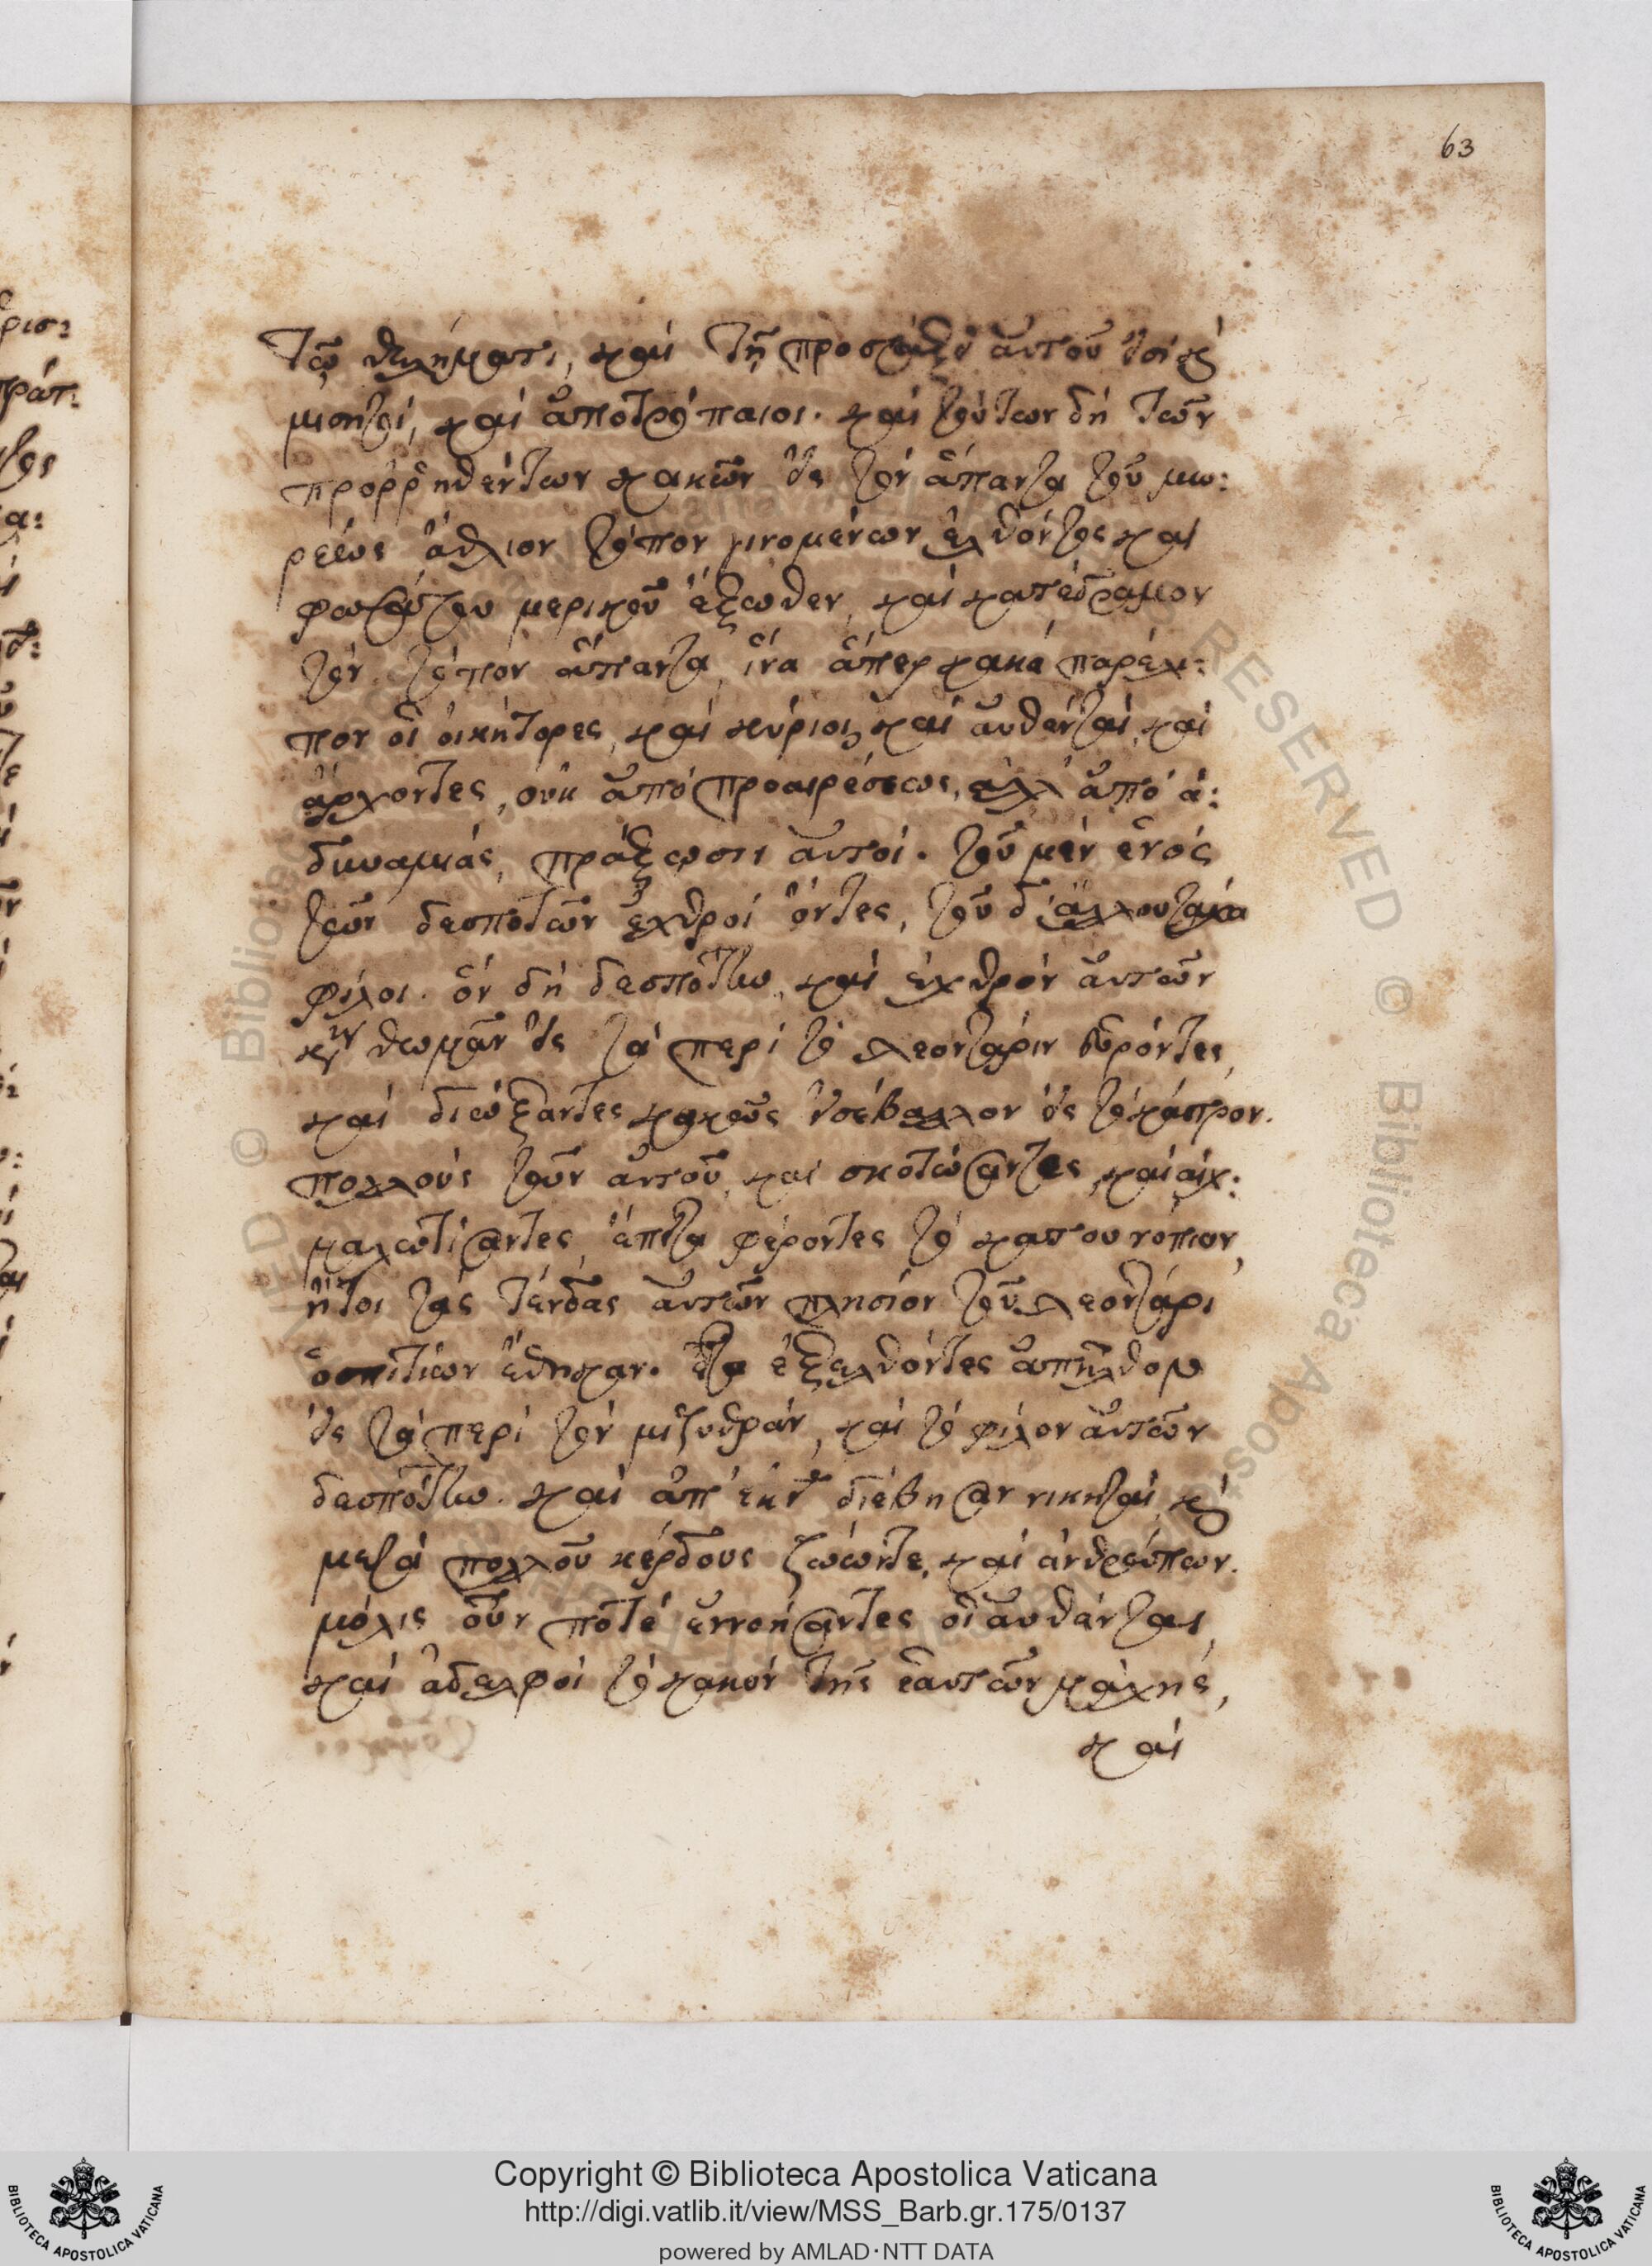 63
τῷ θελήματι, καὶ τῇ προστάξει αὐτοῦ εἰσὶ καὶ
μισητοί, καὶ ἀποτρόπαιοι. καὶ τούτων δὴ τῶν
προῤῥηθέντων κακῶν εἰς τὸν ἅπαντα τοῦ μω:
ρέως ἄθλιον τόπον γινομένων ἐλθόντος καὶ
φωσάτου μερικοῦ ἔξωθεν, καὶ κατέδραμον
τὸν τόπον ἅπαντα, ἵνα ἅπερ κακὰ παρέλι:
πον οἱ οἰκήτορες, καὶ κύριοι, καὶ αὐθένται, καὶ
ἄρχοντες, οὐκ ἀπὸ προαιρέσεως, ἀλλ' ἀπὸ ἀ:
δυναμίας, πράξωσιν αὐτοί. τοῦ μὲν ἑνὸς
τῶν δεσποτῶν ἐχθροὶ ὄντες, τοῦ δ' ἄλλου τάχα
φίλοι. ὃν δὴ δεσπότην, καὶ ἐχθρὸν αὐτῶν
κὺν θωμᾶν εἰς τὰ περὶ τὸ λεοντάριν εὑρόντες,
καὶ διώξαντες κακοὺς εἰσέβαλλον εἰς τὸ κάστρον.
πολλοὺς τῶν αὐτοῦ, καὶ σκοτώσαντες, καὶ αἰχ:
μαλωτίσαντες, ἔπειτα φέροντες τὸ κατουνότοπιον,
ἤτοι τὰς τένδας αὐτῶν πλησίον τοῦ λεοντάρι
ὁσπιτίων ἔθηκαν. εἶτα ἐξελθόντες ἀπῆλθον
εἰς τὰ περὶ τὸν μιζυθρᾶν, καὶ τὸ φίλον αὐτῶν
δεσπότην. καὶ ἀπ' ἐκεῖ διέβησαν νικηταί, καὶ
μετὰ πολλοῦ κέρδους ζώωντε, καὶ ἀνθρώπων.
μόλις οὖν ποτὲ ἐννοήσαντες οἱ αὐθένται,
καὶ ἀδελφοὶ τὸ κακὸν τῆς ἑαυτῶν μάχης,
καὶ
Copyright © Biblioteca Apostolica Vaticana
http://digi.vatlib.it/view/MSS_Barb.gr.175/0137
powered by AMLAD·NTT DATA